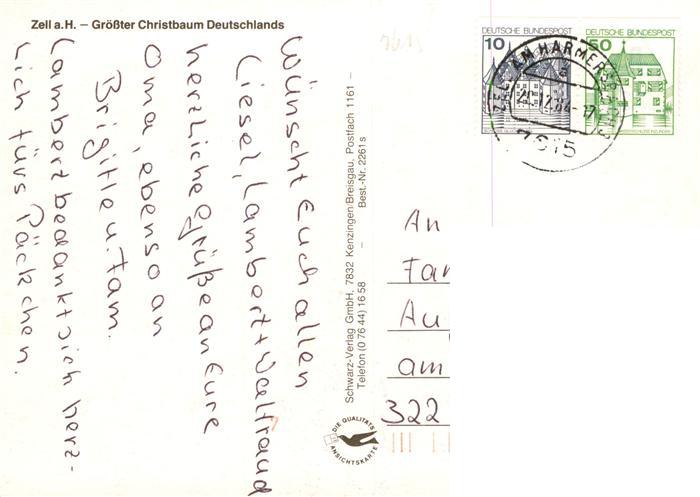 Zell a.H. – Größter Christbaum Deutschlands
Wünscht Euch allen
Liesel, Lambert + Waltraud
herzliche Grüße an Eure
Oma, ebenso an
Brigitte u. Fam.
Lambert bedankt sich herz-
lich fürs Päckchen.
Schwarz-Verlag GmbH, 7832 Kenzingen/Breisgau, Postfach 1161 –
Telefon (0 76 44) 16 58 – Best.-Nr. 2261 s
DIE QUALITÄTS
ANSICHTSKARTE
DEUTSCHE BUNDESPOST
10
DEUTSCHE BUNDESPOST
50
ZELL AM HARMERSBACH
a
7615
An
Fam
Au
am
322